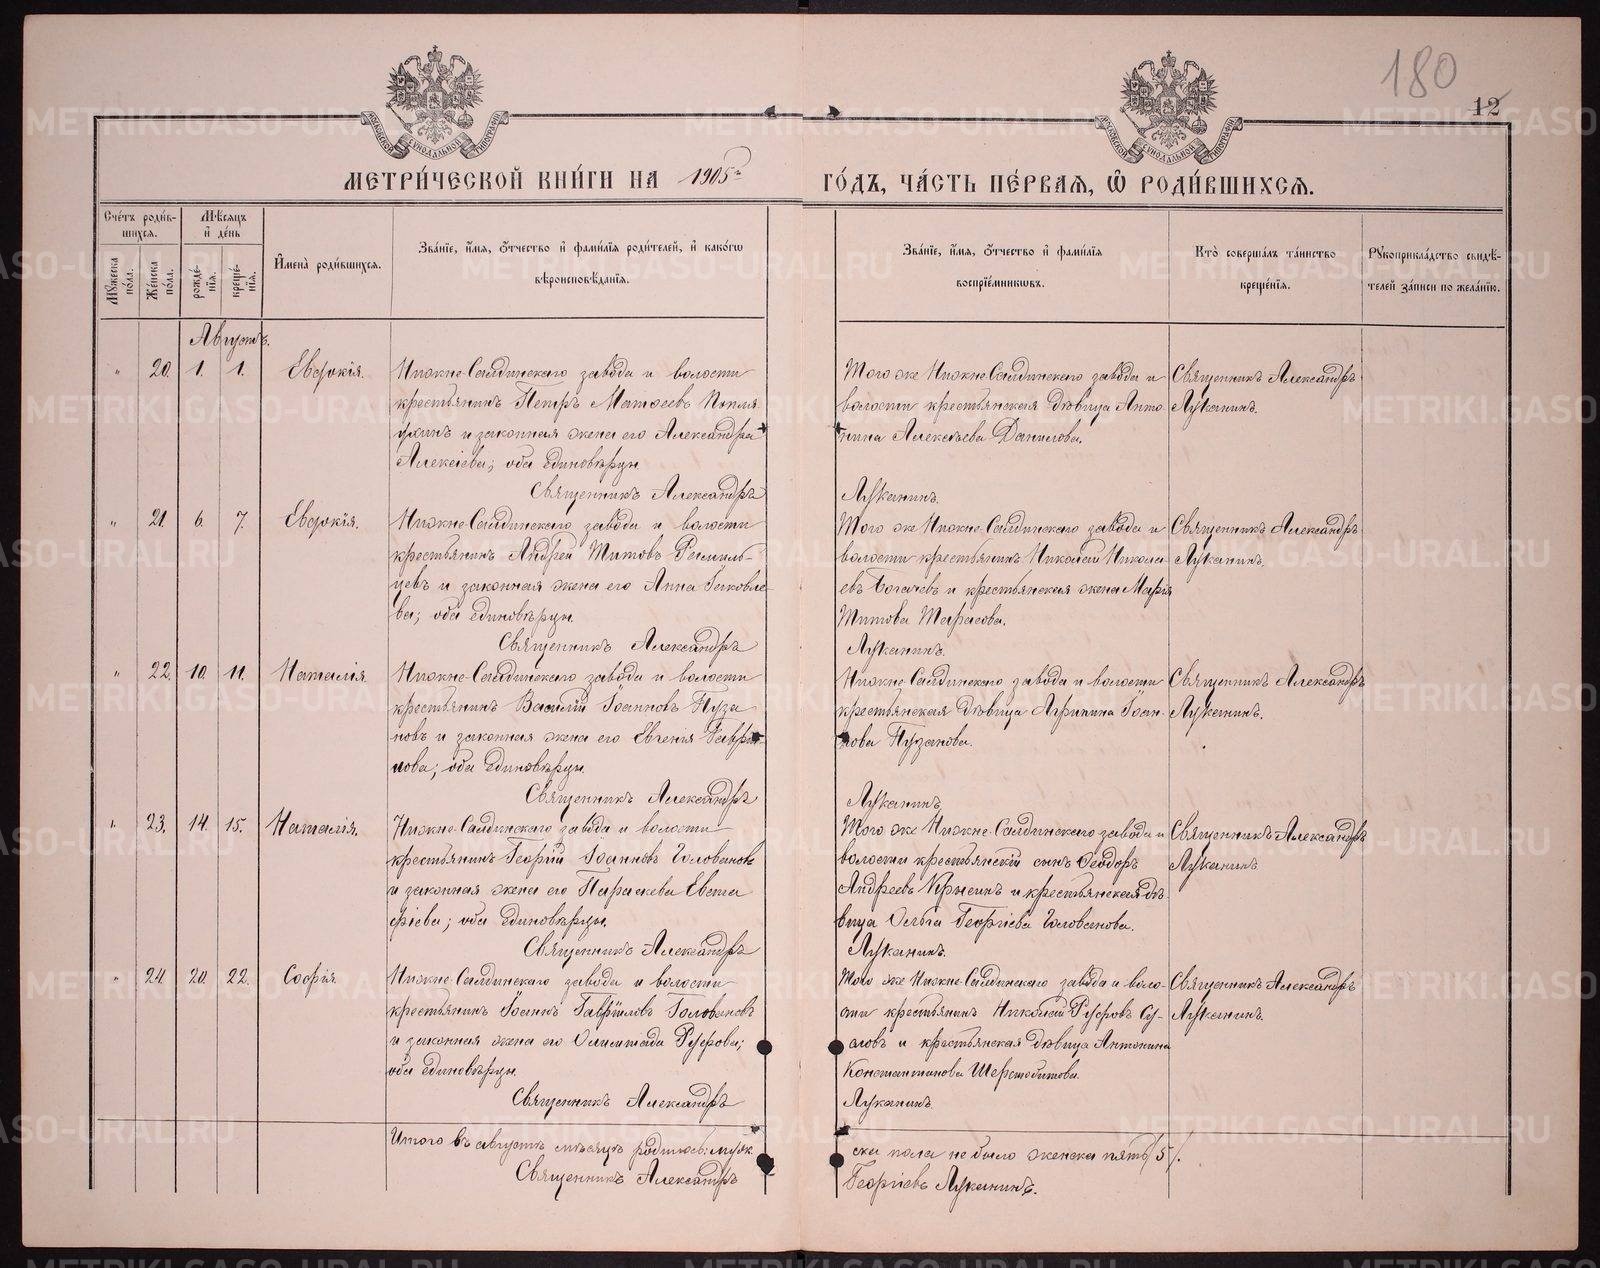 180
12
МОСКОВСКОЙ СѴНОДАЛЬНОЙ ТИПОГРАФІИ
МОСКОВСКОЙ СѴНОДАЛЬНОЙ ТИПОГРАФІИ
МЕТРИ́ЧЕСКОЙ КНИ́ГИ НА 1905й ГО́ДЪ, ЧА́СТЬ ПЕ́РВАѦ, Ѡ РОДИ́ВШИХСѦ.
Сче́тъ роди́в-
шихсѧ.
Мѣ́сѧцъ
и де́нь
Му́жеска по́ла.
Же́нска по́ла.
рожде́-
нїѧ.
креще́-
нїѧ.
Имена̀ роди́вшихсѧ.
Зва́нїе, и́мѧ, о́тчество и фами́лїѧ роди́телей, и како́гѡ
вѣроисповѣ́данїѧ.
Зва́нїе, и́мѧ, о́тчество и фами́лїѧ
воспрїе́мникѡвъ.
Кто̀ соверша́лъ та́инство
креще́нїѧ.
Рукоприкла́дство свидѣ́-
телей за́писи по жела́нїю.
Августъ.
" 20. 1. 1. Евдокія.
Нижне-Салдинскаго завода и волости
крестьянинъ Петръ Матѳеевъ
и законная жена его Александра
Алексіева; оба единовѣрцы.
Священникъ Александръ
Того же Нижне-Салдинскаго завода и
волости крестьянская дѣвица Анто-
нина Алексѣева Данилова.
Луканинъ.
Священникъ Александръ
Луканинъ.
" 21. 6. 7. Евдокія.
Нижне-Салдинскаго завода и волости
крестьянинъ Андрей Титовъ
и законная жена его Анна Іаковле-
ва; оба единовѣрцы.
Священникъ Александръ
Того же Нижне-Салдинскаго завода и
волости крестьянинъ Николай Никола-
евъ Богачевъ и крестьянская жена Марія
Титова Тарасова.
Луканинъ.
Священникъ Александръ
Луканинъ.
" 22. 10. 11. Наталія.
Нижне-Салдинскаго завода и волости
крестьянинъ Василій Іоанновъ Пуза-
новъ и законная жена его Евгенія Гаври-
лова; оба единовѣрцы.
Священникъ Александръ
Нижне-Салдинскаго завода и волости
крестьянская дѣвица Агрипина Іоан-
нова Пузанова.
Луканинъ
Священникъ Александръ
Луканинъ.
" 23. 14. 15. Наталія.
Нижне-Салдинскаго завода и волости
крестьянинъ Георгій Іоанновъ Головановъ
и законная жена его Параскева Евста-
фіева; оба единовѣрцы.
Священникъ Александръ
Того же Нижне-Салдинскаго завода и
волости крестьянскій сынъ Ѳеодоръ
Андреевъ Крысинъ и крестьянская дѣ-
вица Ольга Георгіева Голованова.
Луканинъ.
Священникъ Александръ
Луканинъ.
" 24. 20. 22. Софія.
Нижне-Салдинскаго завода и волости
крестьянинъ Іоаннъ Гавріиловъ Головановъ
и законная жена его Олимпіада Руфова;
оба единовѣрцы.
Священникъ Александръ
Того же Нижне-Салдинскаго завода и воло-
сти крестьянинъ Николай Руфовъ Су-
словъ и крестьянская дѣвица Антонина
Константинова Шерстобитова.
Луканинъ.
Священникъ Александръ
Луканинъ.
Итого въ августѣ мѣсяцѣ родилось: муж-
ска пола не было женска пять /5/.
Священникъ Александръ
Георгіевъ Луканинъ.
METRIKI.GASO-URAL.RU